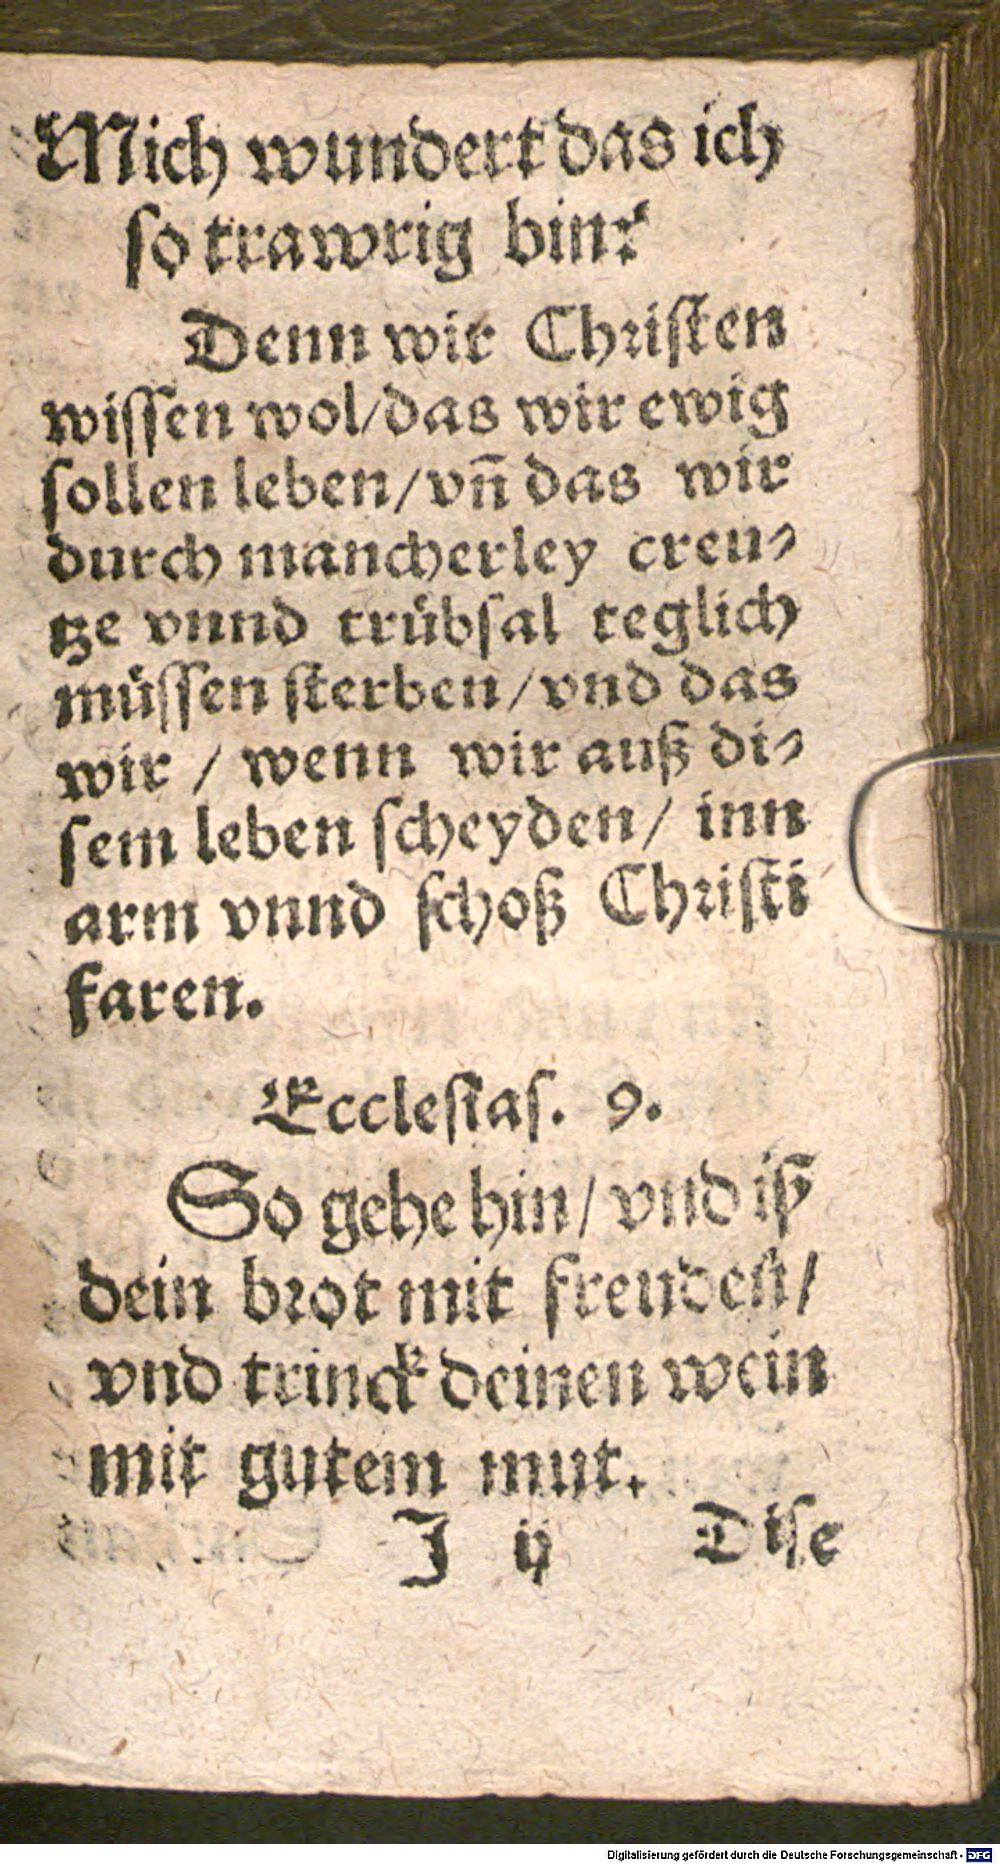 Mich wundert das ich
so trawrig bin?
Denn wir Christen
wissen wol/das wir ewig
sollen leben/vñ das wir
durch mancherley creu⸗
tze vnnd trübsal teglich
müssen sterben/vnd das
wir / wenn wir auß di⸗
sem leben scheyden/ inn
arm vnnd schoß Christi
faren.
Ecclesias. 9.
So gehe hin/ vnd iß
dein brot mit freuden/
vnd trinck deinen wein
mit gutem mut.
J ij Dise
Digitalisierung gefördert durch die Deutsche Forschungsgemeinschaft - DFG